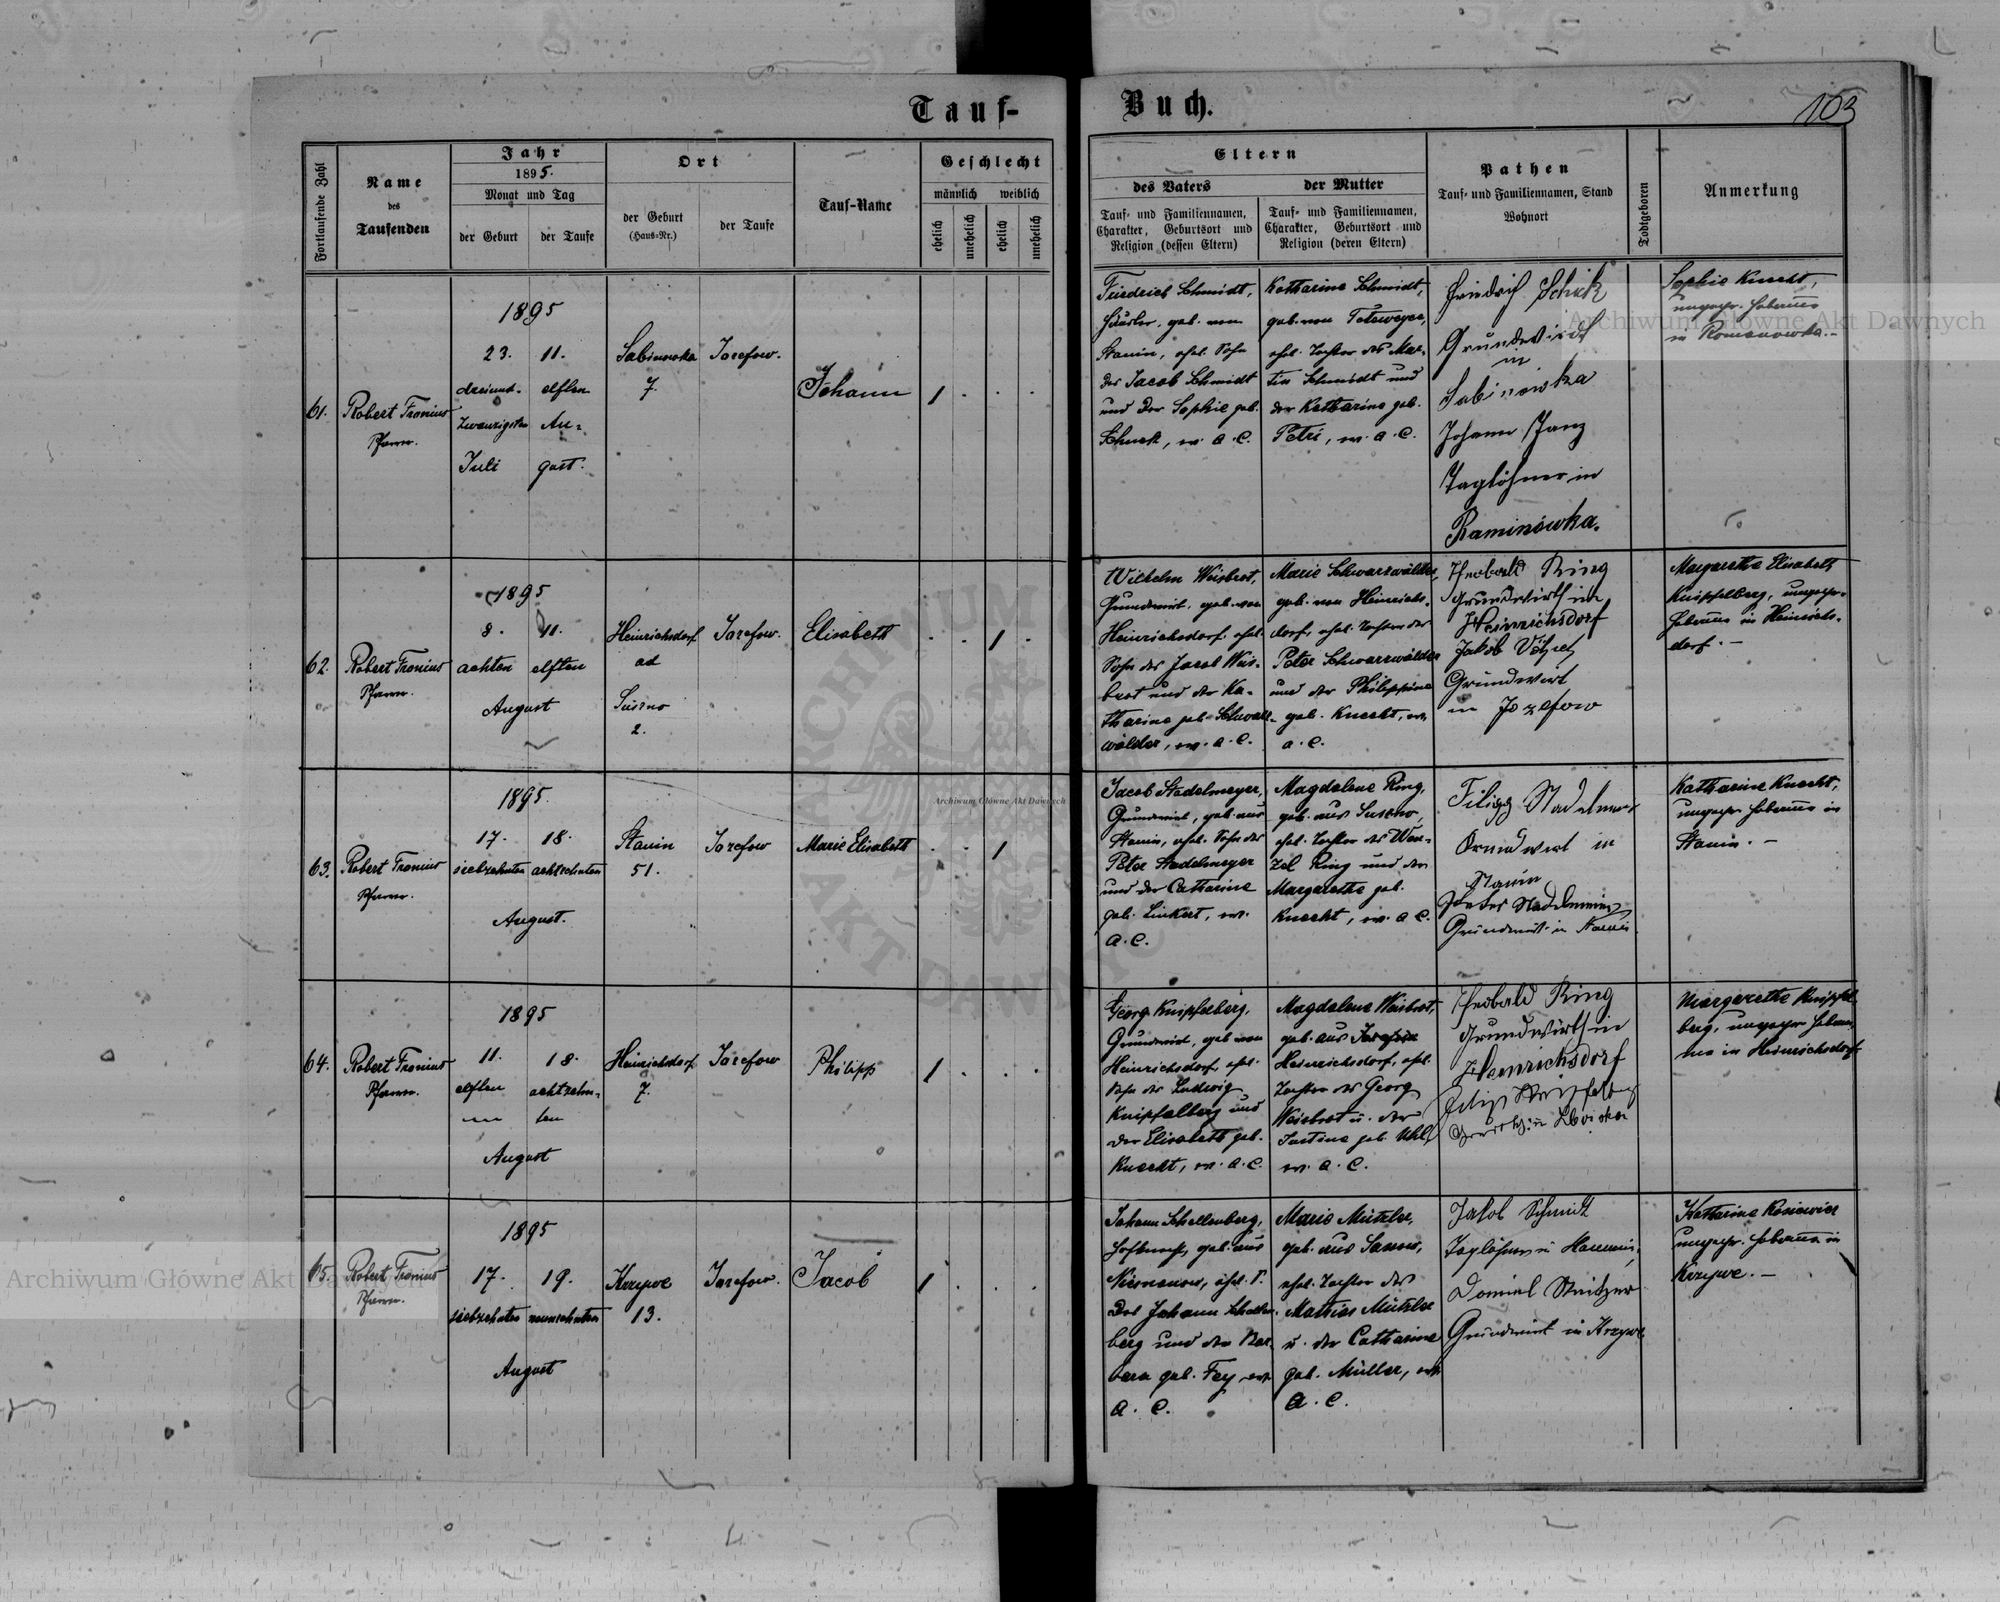 Tauf-
Buch.
103
Fortlaufende Zahl
Name
des
Taufenden
Jahr
1895.
Monat und Tag
der Geburt
der Taufe
Ort
der Geburt
(Haus-Nr.)
der Taufe
Tauf-Name
Geschlecht
männlich
weiblich
ehelich
unehelich
ehelich
unehelich
Eltern
des Vaters
der Mutter
Tauf- und Familiennamen,
Charakter, Geburtsort und
Religion (dessen Eltern)
Tauf- und Familiennamen,
Charakter, Geburtsort und
Religion (deren Eltern)
Pathen
Tauf- und Familiennamen, Stand
Wohnort
Todtgeboren
Anmerkung
61.
Robert Fronius
Pfarrer.
1895
23. 11.
dreiund- elften
zwanzigsten Au-
Juli gust.
Sabinowka
7.
Jozefow.
Johann
1
Friedrich Schmidt,
Häusler, geb. von
Stanin, ehel. Sohn
des Jacob Schmidt
und der Sophie geb.
Schuck, ev. A. C.
Katharina Schmidt,
geb. von
ehel. Tochter des Mar-
tin Schmidt und
der Katharina geb.
Petri, ev. A. C.
Friedrich Schuk
Grundwirth
in
Sabinowka
Johann Janz
Taglöhner in
Romanówka.
Sophie Knecht,
ungepr. Hebamme
in Romanowka.-
62.
Robert Fronius
Pfarrer.
1895
8. 11.
achten elften
August
Heinrichsdorf
ad
Suszno
2.
Jozefow.
Elisabeth
1
Wilhelm Weisbrot,
Grundwirt, geb. von
Heinrichsdorf, ehel.
Sohn des Jacob Weis-
brot und der Ka-
tharina geb. Schwarz-
wälder, ev. A. C.
Marie Schwarzwälder,
geb. von Heinrichs-
dorf, ehel. Tochter des
Peter Schwarzwälder
und der Philippina
geb. Knecht, ev.
A. C.
Theobald Ring
Grundwirth in
Heinrichsdorf
Jakob
Grundwirt
in Jozefow
Margaretha Elisabeth
Knipfelberg, ungepr.
Hebamme in Heinrichs-
dorf. -
63.
Robert Fronius
Pfarrer.
1895.
17. 18.
siebzehnten achtzehnten
August.
Stanin
51.
Jozefow
Marie Elisabeth
1
Jacob Stadelmeyer,
Grundwirt, geb. aus
Stanin, ehel. Sohn des
Peter Stadelmeyer
und der Catharina
geb. Linkert, ev.
A. C.
Magdalena Ring,
geb. aus Suszno,
ehel. Tochter des Wen-
zel Ring und der
Margaretha geb.
Knecht, ev. A. C.
Filipp
Grundwirt in
Stanin
Grundwirt in Stanin
Katharina Knecht,
ungepr. Hebamme in
Stanin. -
64.
Robert Fronius
Pfarrer.
1895
11. 18.
elften achtzehn-
ten
August
Heinrichsdorf
7.
Jozefow
Philipp
1
Georg Knipfelberg,
Grundwirt, geb. von
Heinrichsdorf, ehel.
Sohn des Ludwig
Knipfelberg und
der Elisabeth geb.
Knecht, ev. A. C.
Magdalena Weisbrot,
geb. aus
Heinrichsdorf, ehel.
Tochter des Georg
Weisbrot u. der
Justina geb. Uhl,
ev. A. C.
Theobald Ring
Grundwirth in
Heinrichsdorf
Margaretha Knipfel-
berg, ungepr. Hebam-
me in Heinrichsdorf
65.
Robert Fronius
Pfarrer.
1895
17. 19.
siebzehnten neunzehnten
August
Krzywe
13.
Jozefow.
Jacob
1
Johann Schellenberg,
Hofknecht, geb. aus
ehel. S.
des Johann Schellen-
berg und der Bar-
bara geb. Fey, ev.
A. C.
Marie Mützler,
geb. aus
ehel. Tochter des
Mathias Mützler
u. der Catharina
geb. Müller, ev.
A. C.
Jakob Schmidt
Taglöhner in
Daniel
Grundwirt in Krzywe
Katharina
ungepr. Hebamme in
Krzywe. -
Archiwum Główne Akt Dawnych
Archiwum Główne Akt Dawnych
Archiwum Główne Akt Dawnych
ARCHIWUM
AKT DAWNYCH